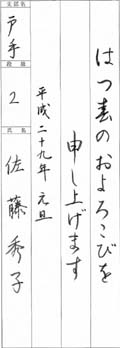 はつ春のおよろこびを
申し上げます
平成二十九年 元旦
支部名
戸手
段級
2
氏名
佐藤秀子